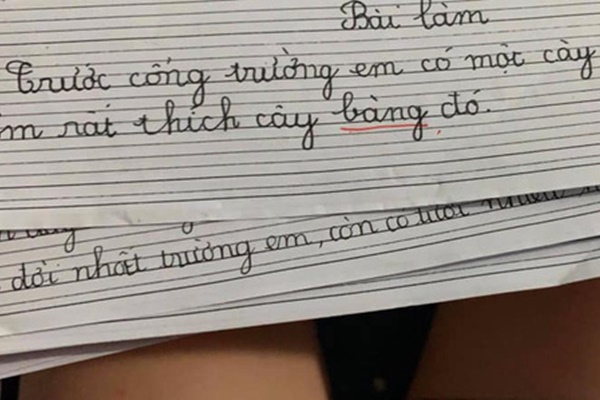 Bài làm
Trước cổng trường em có một cây
rất thích cây bàng đó.
đời nhất trường em, còn có tươi